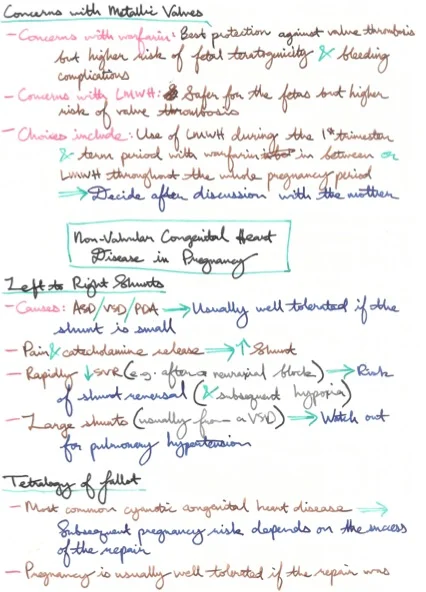 Concerns with Metallic Valves
- Concerns with warfarin: Best protection against valve thrombosis
but higher risk of fetal teratogenicity & bleeding
complications
- Concerns with LMWH: Safer for the fetus but higher
risk of valve thrombosis
- Choices include: Use of LMWH during the 1st trimester
& term period with warfarin in between or
LMWH throughout the whole pregnancy period
⇒ Decide after discussion with the mother
Non-Valvular Congenital Heart
Disease in Pregnancy
Left to Right Shunts
- Causes: ASD/VSD/PDA → Usually well tolerated if the
shunt is small
- Pain & catecholamine release → ↑ Shunt
- Rapidly ↓ SVR (e.g. after a neuraxial block) → Risk
of shunt reversal (& subsequent hypoxia)
- Large shunts (usually from a VSD) → Watch out
for pulmonary hypertension
Tetralogy of fallot
- Most common cyanotic congenital heart disease →
Subsequent pregnancy risk depends on the success
of the repair
- Pregnancy is usually well tolerated if the repair was